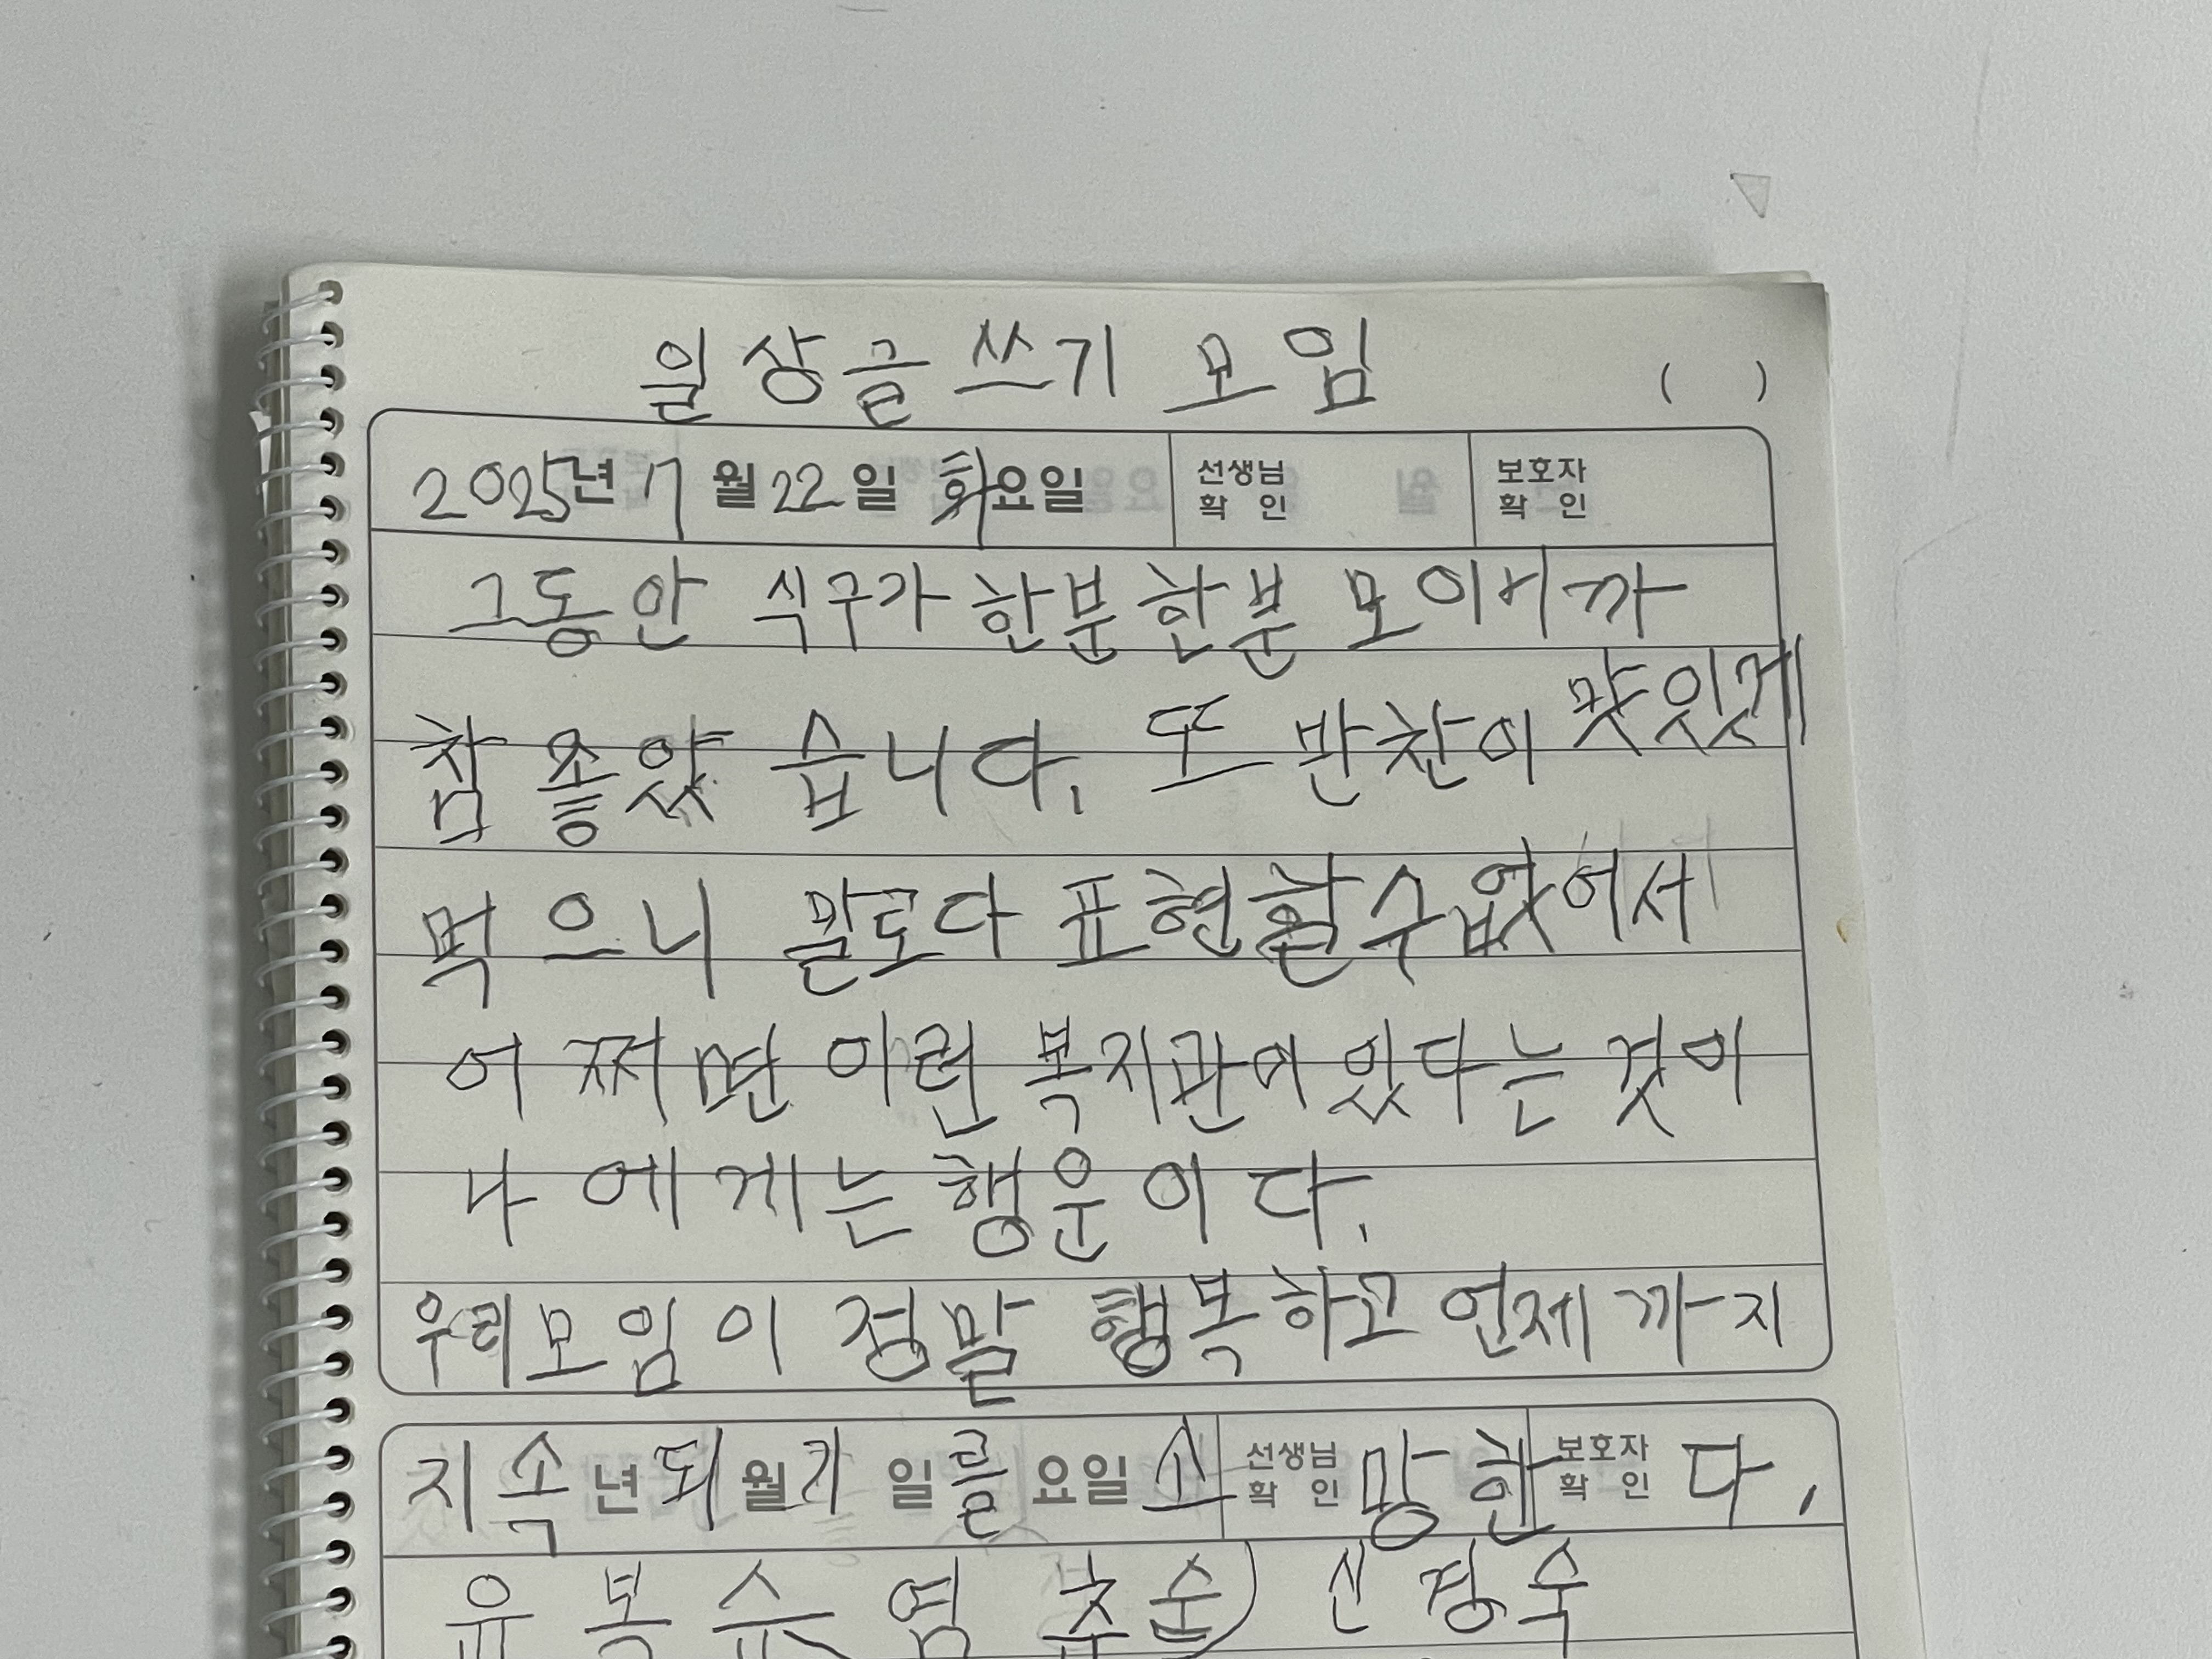 일상글쓰기 모임
( )
2025년 7월 22일 화요일 선생님 확인 보호자 확인
그동안 식구가 한분한분 모이니까
참 좋았습니다. 또 반찬이 맛있게
먹으니 말로다 표현할수없어서
어쩌면 이런 복지관이 있다는 것이
나에게는 행운이다.
우리모임이 정말 행복하고 언제까지
지속 년 되 월 기 일 를 요일 소 선생님 확인 망 한 보호자 확인 다.
유복슈 염춘순) 신경숙